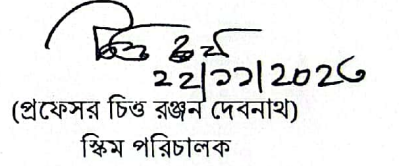 ২২/১১/২০২৩
(প্রফেসর চিত্ত রঞ্জন দেবনাথ)
স্কিম পরিচালক